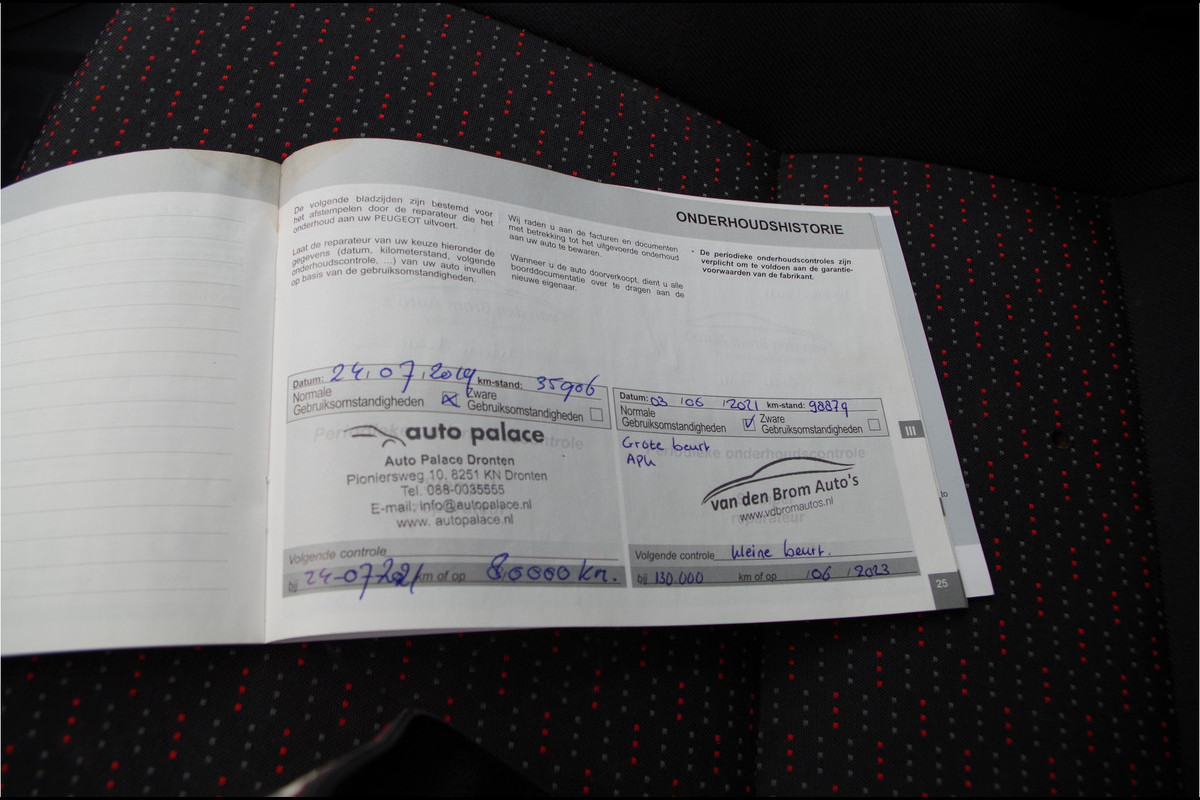 ONDERHOUDSHISTORIE
De volgende bladzijden zijn bestemd voor
het afstempelen door de reparateur die het
onderhoud aan uw PEUGEOT uitvoert.
Laat de reparateur van uw keuze hieronder de
gegevens (datum, kilometerstand, volgende
onderhoudscontrole, ...) van uw auto invullen
op basis van de gebruiksomstandigheden.
Wij raden u aan de facturen en documenten
met betrekking tot het uitgevoerde onderhoud
aan uw auto te bewaren.
Wanneer u de auto doorverkoopt, dient u alle
boorddocumentatie over te dragen aan de
nieuwe eigenaar.
• De periodieke onderhoudscontroles zijn
verplicht om te voldoen aan de garantie-
voorwaarden van de fabrikant.
Datum: 24.07.2019 km-stand: 35906
Normale Zware
Gebruiksomstandigheden Gebruiksomstandigheden
auto palace
Auto Palace Dronten
Pioniersweg 10, 8251 KN Dronten
Tel. 088-0035555
E-mail: info@autopalace.nl
www. autopalace.nl
Volgende controle
bij 24-07-2021 km of op 80000 km.
Datum: 03 /06 /2021 km-stand: 98879
Normale Zware
Gebruiksomstandigheden Gebruiksomstandigheden
Grote beurt
APK
Periodieke onderhoudscontrole
van den Brom Auto's
www.vdbromautos.nl
reparateur
Volgende controle kleine beurt.
bij 130.000 km of op /06 /2023
III
to
25